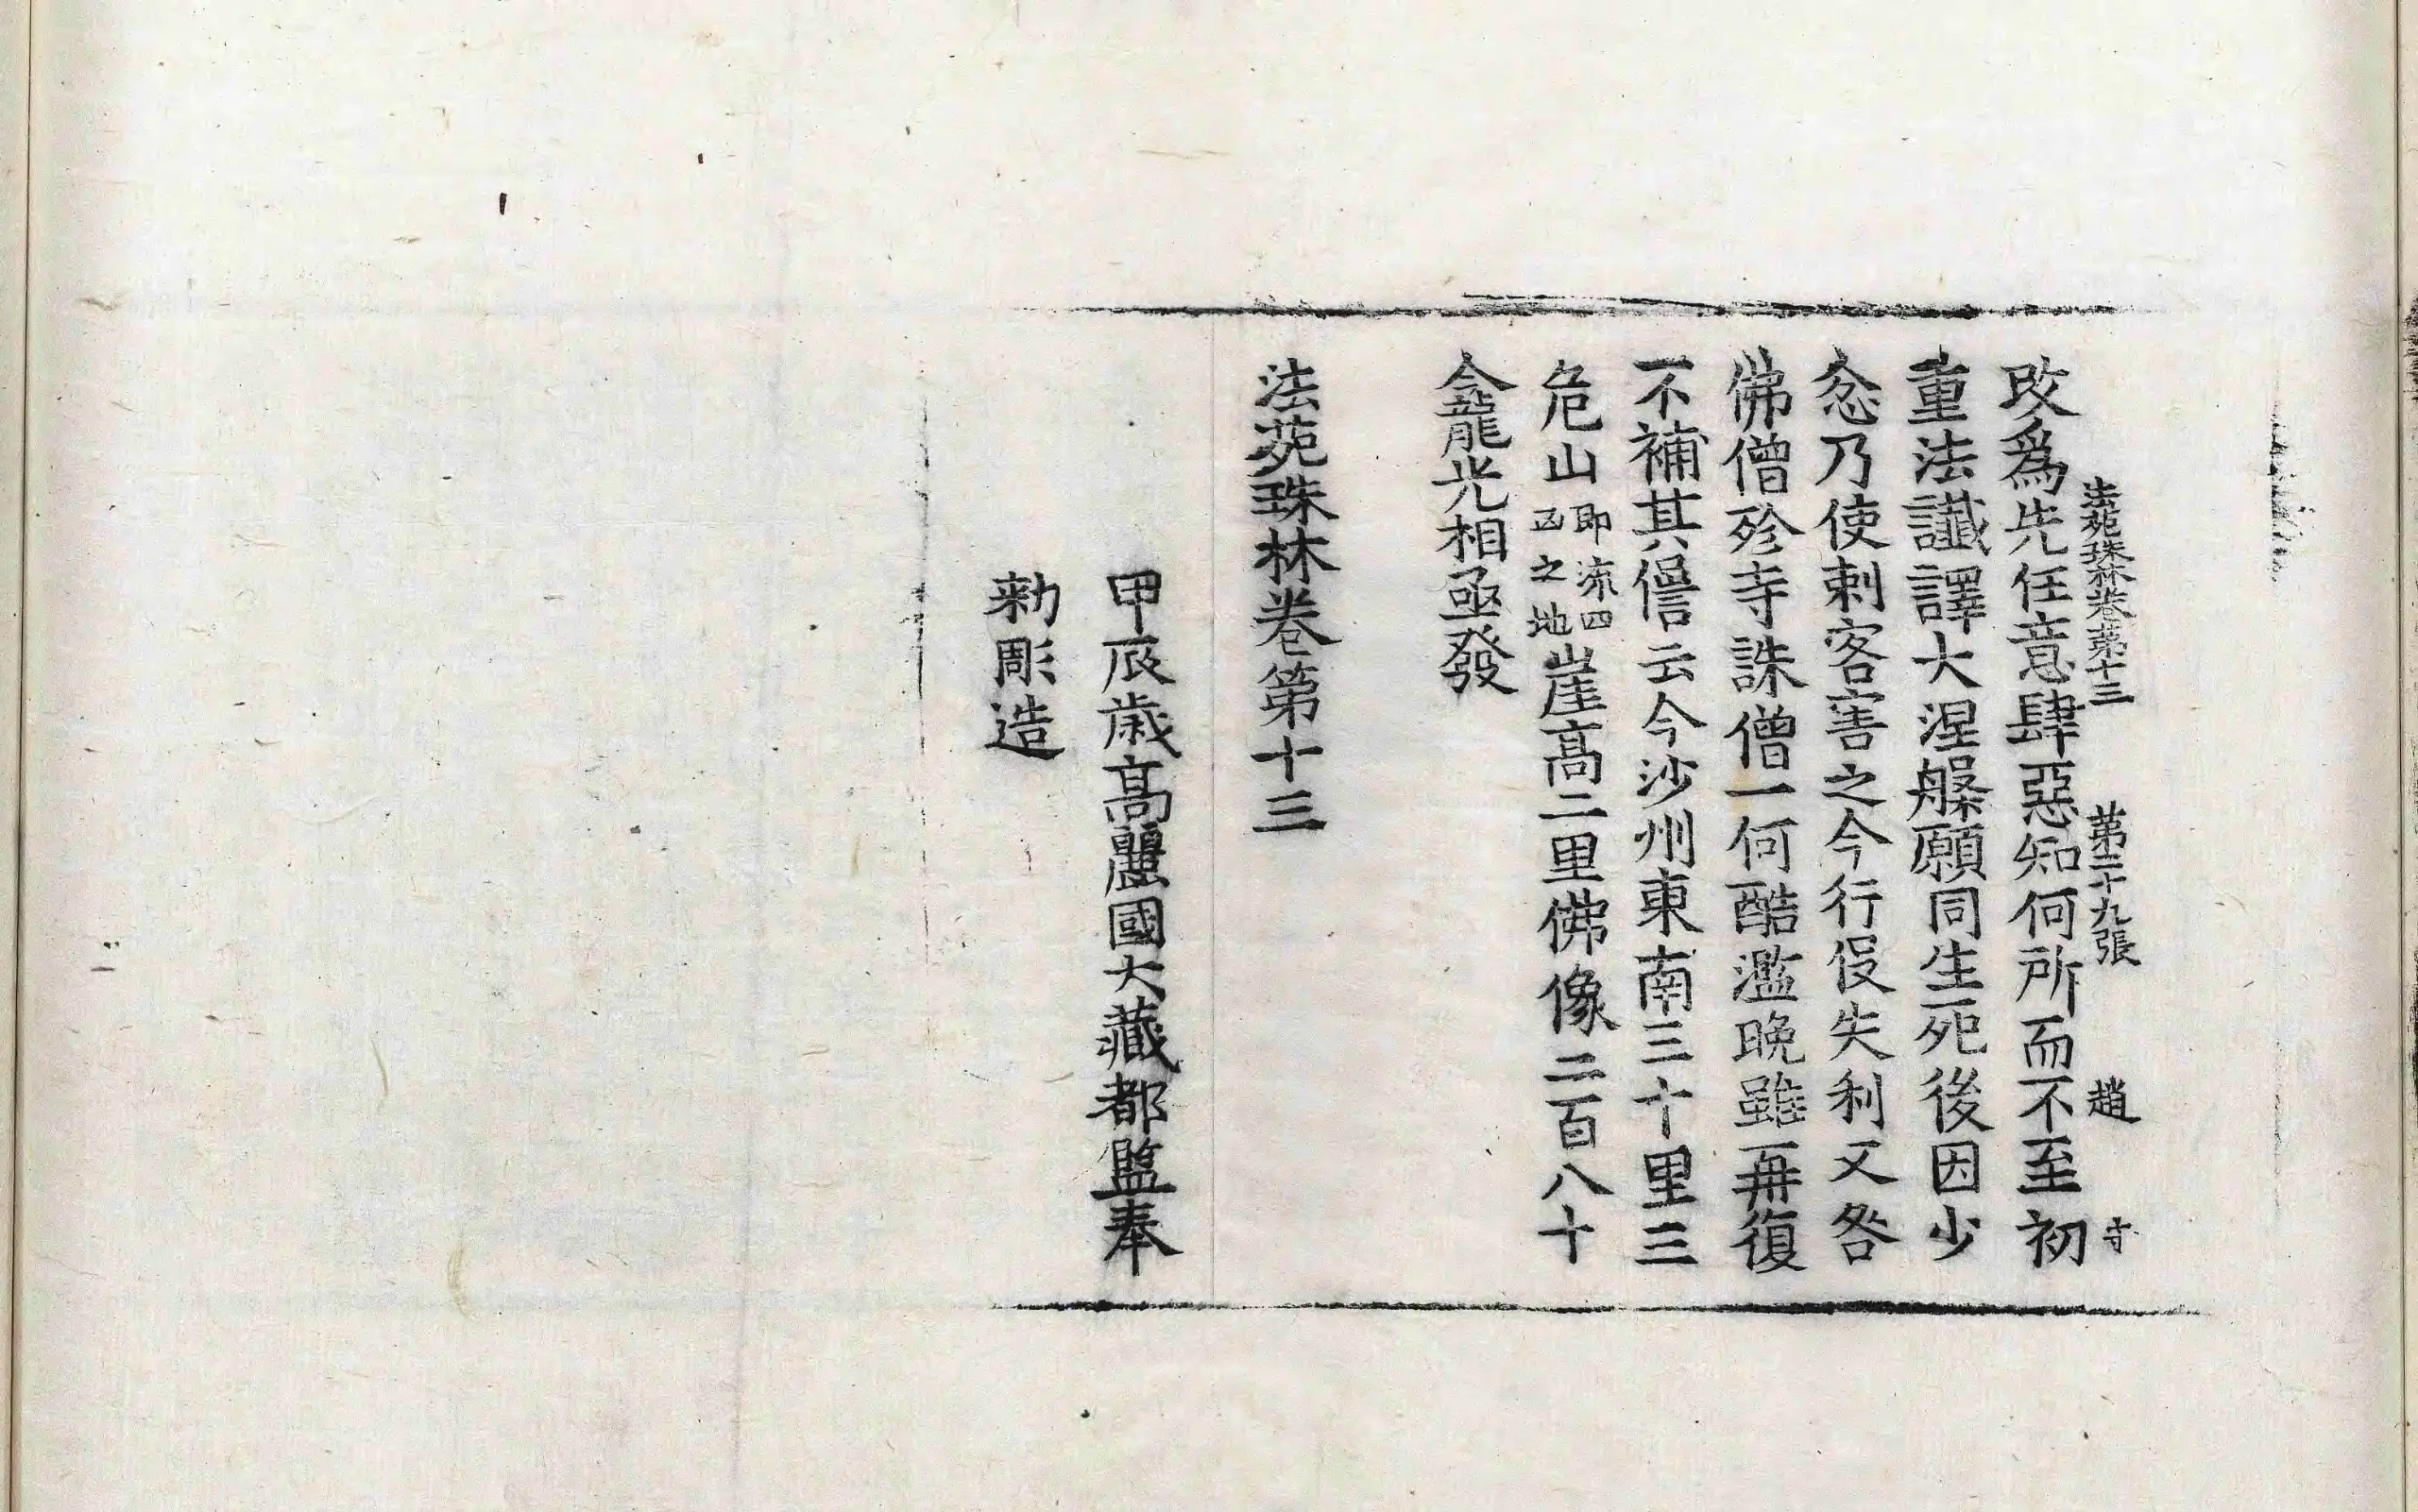 法苑珠林卷第十三 第三十九張 趙 寺
改爲先任意肆惡知何所而不至初
重法讖譯大涅槃願同生死後因少
忿乃使刺客害之今行役失利又咎
佛僧殄寺誅僧一何酷濫晚雖再復
不補其𠎝云今沙州東南三十里三
危山
即流四
凶之地
崖高二里佛像二百八十
龕光相亟發
法苑珠林卷第十三
甲辰歲高麗國大藏都監奉
勅彫造